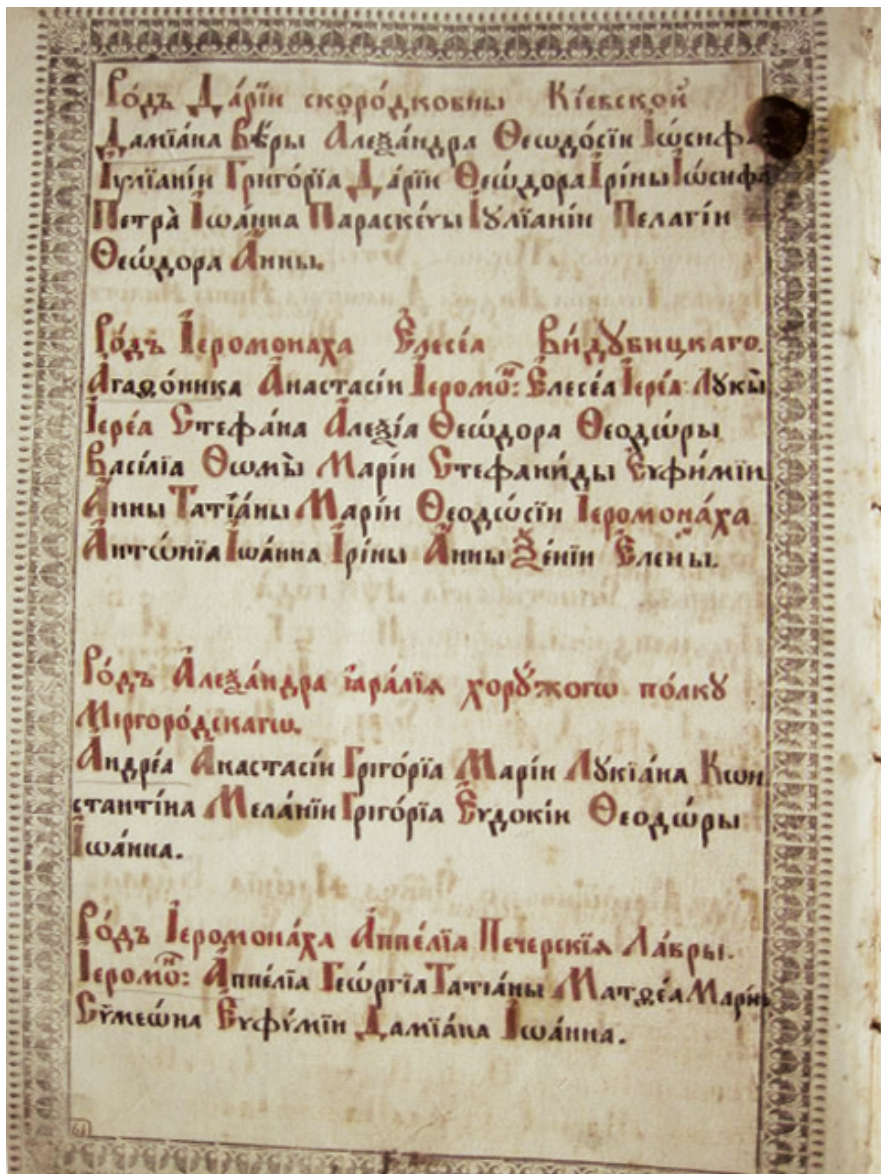 Ро́дъ Да́рїи скоро́дковны Кіевской
Дамїа́на Вѣ́ры Алеѯа́ндра Ѳеѡдо́сїи Іѡ́сифа
Іулїа́ніи Григо́рїа Да́рїи Ѳеѡ́дора Ірі́ны Іѡ́сифа
Петра̀ Іѡа́нна Параске́ѵы Іꙋлїа́ніи Пела́гіи
Ѳеѡ́дора А́нны.
Ро́дъ Іеромонаха Елесе́а Ви́дꙋбицкаго.
Агаѳо́ника Анастасі́и Іеромо̑: Елесе́а Іере́а Лꙋкѝ
Іере́а Стефа́на Алеѯі́а Ѳеѡ́дора Ѳеодѡ́ры
Васі́лїа Ѳомы̀ Марі́и Стефани́ды Еѵфи́мїи
А́нны Татїа́ны Марі́и Ѳеодѡ́сїи Іеромона́ха
Антѡ́нїа Іѡа́нна Ірі́ны А́нны Ѯе́нїи Еле́ны.
Ро́дъ Алеѯа́ндра Гара́лїѧ хорꙋ́жогѡ по́лкꙋ
Міргоро́дскагѡ.
Андре́а Анастасі́и Грїго́рїа Марі́и Лꙋкїа́на Кѡн
стантї́на Мела́нїи Грїго́рїа Еѵдокі́и Ѳеодѡ́ры
Іѡа́нна.
Ро́дъ Іеромона́ха Аппе́лїа Пече́рскїѧ Ла́вры.
Іеромо̑: Аппе́лїа Геѡ́ргїа Татїа́ны Матѳе́а Марі́и
Сѷмеѡ́на Еѵфи́мїи Дамїа́на Іѡа́нна.
61